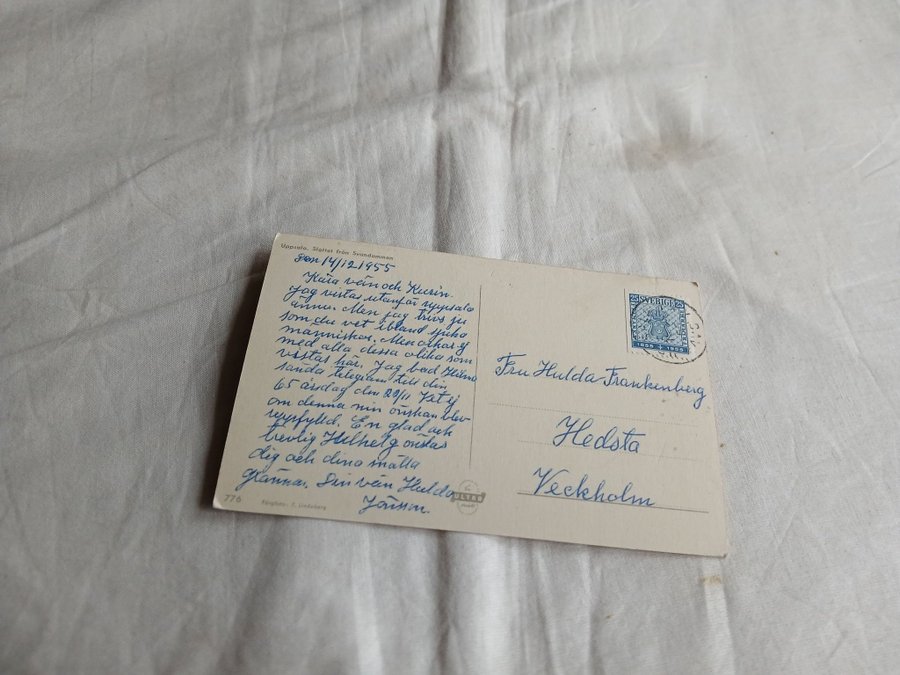 Uppsala. Slottet från Svandammen
den 14/12 1955
Kära vän och Kusin.
Jag vistas utanför uppsala
ännu. Men jag trivs ju
som du vet ibland sjuka
människor. Men
med alla dessa olika som
vistas här. Jag bad
sända telegram till din
65 årsdag den 29/11 Vet ej
om denna min önskan blev
uppfylld. En glad och
trevlig Julhelg önskas
dig och dina snälla
grannar. Din vän Hulda
Jönsson.
776
Färgfoto: F. Lindeberg
ULTRA
25 SVERIGE 25
1855 1955
Fru Hulda Frankenberg
Hedsta
Veckholm